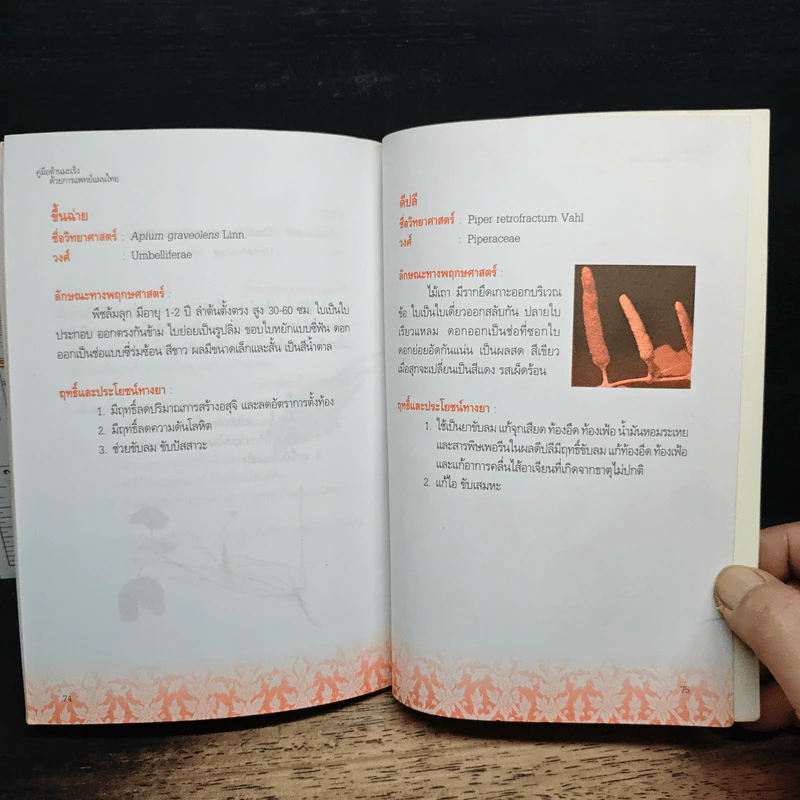 คู่มือต้านมะเร็ง
ด้วยการแพทย์แผนไทย
ขึ้นฉ่าย
ชื่อวิทยาศาสตร์ : Apium graveolens Linn.
วงศ์ : Umbelliferae
ลักษณะทางพฤกษศาสตร์ :
พืชล้มลุก มีอายุ 1-2 ปี ลำต้นตั้งตรง สูง 30-60 ซม. ใบเป็นใบ
ประกอบ ออกตรงกันข้าม ใบย่อยเป็นรูปลิ่ม ขอบใบหยักแบบซี่ฟัน ดอก
ออกเป็นช่อแบบซี่ร่มซ้อน สีขาว ผลมีขนาดเล็กและสั้น เป็นสีน้ำตาล
ฤทธิ์และประโยชน์ทางยา :
1. มีฤทธิ์ลดปริมาณการสร้างอสุจิ และลดอัตราการตั้งท้อง
2. มีฤทธิ์ลดความดันโลหิต
3. ช่วยขับลม ขับปัสสาวะ
74
ดีปลี
ชื่อวิทยาศาสตร์ : Piper retrofractum Vahl
วงศ์ : Piperaceae
ลักษณะทางพฤกษศาสตร์ :
ไม้เถา มีรากยึดเกาะออกบริเวณ
ข้อ ใบเป็นใบเดี่ยวออกสลับกัน ปลายใบ
เรียวแหลม ดอกออกเป็นช่อที่ซอกใบ
ดอกย่อยอัดกันแน่น เป็นผลสด สีเขียว
เมื่อสุกจะเปลี่ยนเป็นสีแดง รสเผ็ดร้อน
ฤทธิ์และประโยชน์ทางยา :
1. ใช้เป็นยาขับลม แก้จุกเสียด ท้องอืด ท้องเฟ้อ น้ำมันหอมระเหย
และสารพิษเพอรีนในผลดีปลีมีฤทธิ์ขับลม แก้ท้องอืด ท้องเฟ้อ
และแก้อาการคลื่นไส้อาเจียนที่เกิดจากธาตุไม่ปกติ
2. แก้ไอ ขับเสมหะ
75